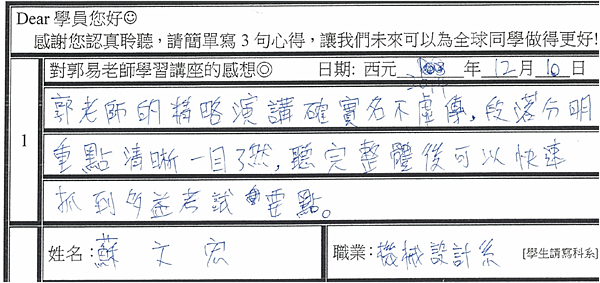 Dear 學員您好☺
感謝您認真聆聽，請簡單寫 3 句心得，讓我們未來可以為全球同學做得更好!
對郭易老師學習講座的感想◎ 日期: 西元 年 12 月 10 日
1
郭老師的精略演講確實名不虛傳,段落分明
重點清晰一目了然,聽完整體後可以快速
抓到 考試 要點。
姓名:蘇文宏 職業:機械設計系 [學生請寫科系]